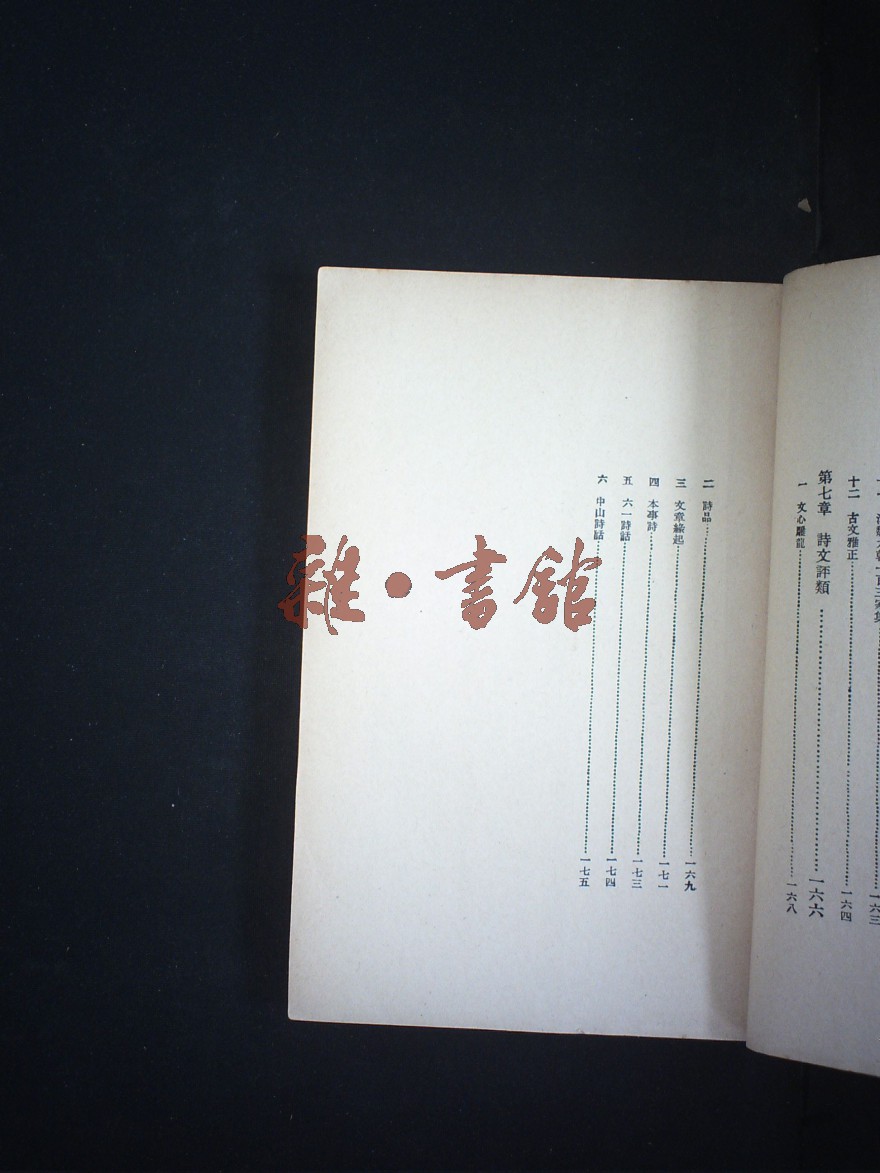 十二 古文雅正……一六四
第七章 詩文評類……一六六
一 文心雕龍……一六八
二 詩品……一六九
三 文章緣起……一七一
四 本事詩……一七三
五 六一詩話……一七四
六 中山詩話……一七五
雜·書館